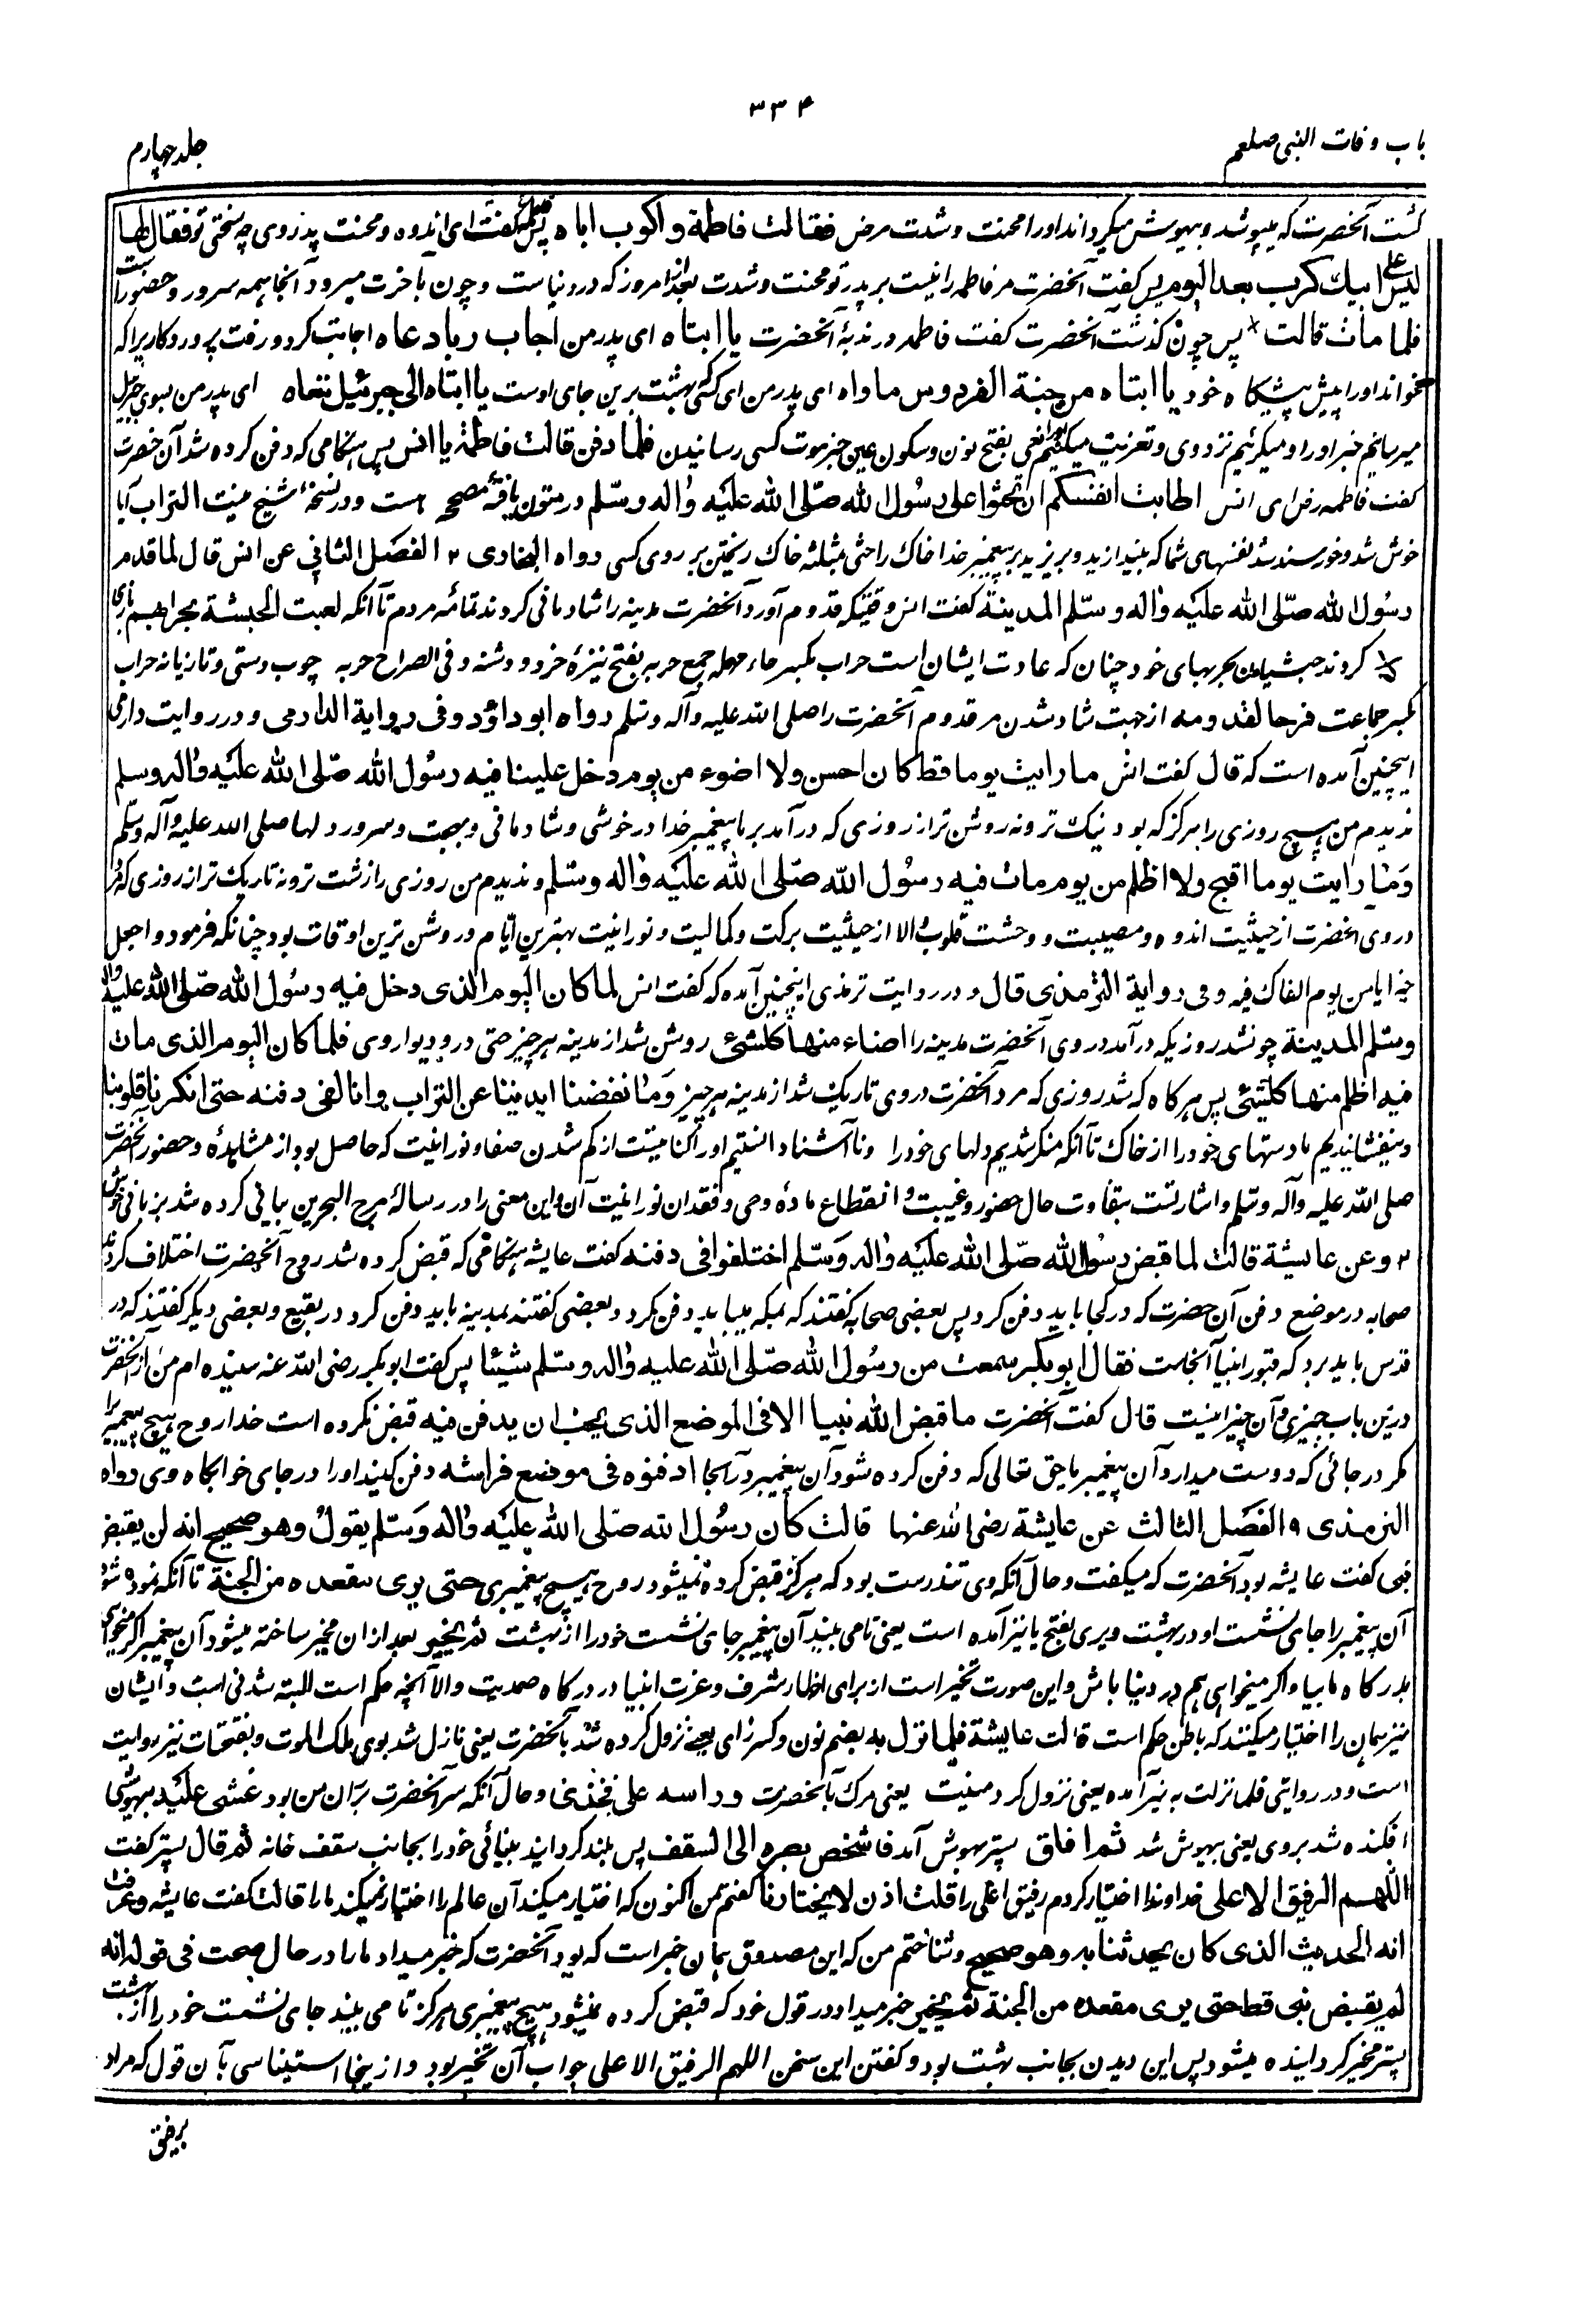 ۳۳۴
باب وفات النبی صلعم
جلد چهارم
گشت آنحضرت که میپوشد و بیهوش میگرداند او را محنت و شدت مرض فقالت فاطمة واکرب اباه پس گفت ای اندوه و محنت پدر وی چه سختی تو فقال لها
لیس علی ابیک کرب بعد الیوم پس گفت آنحضرت مر فاطمه را نیست بر پدر تو محنت و شدت بعد از امروز که در دنیاست و چون بآخرت میرود آنجا همه سرور و حضور است
فلما مات قالت پس چون گذشت آنحضرت گفت فاطمه در ندبهٔ آنحضرت یا ابتاه ای پدر من اجاب ربا دعاه اجابت کرد و رفت پروردگاریرا که
بخواند او را پیش پیشگاه خود یا ابتاه من جنة الفردوس ماواه ای پدر من ای کسی بهشت برین جای اوست یا ابتاه الی جبرئیل ننعاه ای پدر من بسوی جبرئیل
میرسانیم خبر او را و میگرئیم نزد وی و تعزیت میکنیم نعی بفتح نون و سکون عین خبر موت کسی رسانیدن فلما دفن قالت فاطمة یا انس پس هنگامی که دفن کرده شد آن حضرت
گفت فاطمه رض ای انس اطابت انفسکم ان تحثوا علی رسول الله صلی الله علیه واله وسلم در متون یافته مصحح است و در نسخهٔ شیخ منیت التراب آیا
خوش شد و خورسند شد نفسهای شما که بیندازید و بریزید بر پیغمبر خدا خاک را حثی بمثلثه خاک ریختن بر روی کسی رواه البخاری ۲ الفصل الثانی عن انس قال لما قدم
رسول الله صلی الله علیه واله وسلم المدینة گفت انس وقتیکه قدوم آورد آنحضرت مدینه را شادمانی کردند تمامه مردم تا آنکه لعبت الحبشة بحرابهم بازی
کردند حبشیان بحربهای خود چنان که عادت ایشان است حراب بکسر حاء مهمله جمع حربه بفتح نیزهٔ خرد و دشنه و فی الصراح حربه چوب دستی و تازیانه حراب
بکسر جماعت فرحا لقدومه از جهت شاد شدن مر قدوم آنحضرت را صلی الله علیه وآله وسلم رواه ابو داؤد وفی روایة الدارمی و در روایت دارمی
اینچنین آمده است که قال گفت انس ما رایت یوما قط کان احسن ولا اضوء من یوم دخل علینا فیه رسول الله صلی الله علیه واله وسلم
ندیدم من هیچ روزی را هرگز که بود نیک تر و نه روشن تر از روزی که در آمد بر ما پیغمبر خدا در خوشی و شادمانی و بهجت و سرور دلها صلی الله علیه وآله وسلم
وما رایت یوما اقبح ولا اظلم من یوم مات فیه رسول الله صلی الله علیه واله وسلم و ندیدم من روزی را زشت تر و نه تاریک تر از روزی که مرد
در وی آنحضرت از حیثیت اندوه و مصیبت و وحشت قلوب والا از حیثیت برکت و کمالیت و نورانیت بهترین ایام و روشن ترین اوقات بود چنانکه فرمود و اجعل
خیر ایامی یوم القاک فیه وفی روایة الترمذی قال و در روایت ترمذی اینچنین آمده که گفت انس لما کان الیوم الذی دخل فیه رسول الله صلی الله علیه واله
وسلم المدینة چون شد روزیکه در آمد در وی آنحضرت مدینه را اضاء منها کل شئ روشن شد از مدینه هر چیز حتی در و دیوار وی فلما کان الیوم الذی مات
فیه اظلم منها کل شئ پس هرگاه که شد روزی که مرد آنحضرت در وی تاریک شد از مدینه هر چیز وما نفضنا ایدینا عن التراب وانا لفی دفنه حتی انکرنا قلوبنا
و نیفشاندیم ما دستهای خود را از خاک تا آنکه منکر شدیم دلهای خود را و نا آشنا دانستیم او را کنایتست از کم شدن صفا و نورانیت که حاصل بود از مشاهدهٔ و حضور آنحضرت
صلی الله علیه وآله وسلم و اشارتست بتفاوت حال حضور و غیبت و انقطاع مادهٔ وحی و فقدان نورانیت آن و این معنی را در رسالهٔ مرج البحرین بیانی کرده شد بزبانی خوش
۳ وعن عایشة قالت لما قبض رسول الله صلی الله علیه واله وسلم اختلفوا فی دفنه گفت عایشه هنگامی که قبض کرده شد روح آنحضرت اختلاف کردند
صحابه در موضع دفن آن حضرت که در کجا باید دفن کرد پس بعضی صحابه گفتند که بمکه میباید دفن کرد و بعضی گفتند بمدینه باید دفن کرد در بقیع و بعضی دیگر گفتند که در
قدس باید برد که قبور انبیا آنجاست فقال ابو بکر سمعت من رسول الله صلی الله علیه واله وسلم شیئا پس گفت ابو بکر رضی الله عنه شنیده ام من از آنحضرت
درین باب چیزی و آن چیز اینست قال گفت آنحضرت ما قبض الله نبیا الا فی الموضع الذی یحب ان یدفن فیه قبض نکرده است خدا روح هیچ پیغمبر را
مگر در جائی که دوست میدارد آن پیغمبر یا حق تعالی که دفن کرده شود آن پیغمبر در آنجا ادفنوه فی موضع فراشه دفن کنید او را در جای خوابگاه وی رواه
الترمذی ۹ الفصل الثالث عن عایشة رضی الله عنها قالت کان رسول الله صلی الله علیه واله وسلم یقول وهو صحیح انه لن یقبض
نبی گفت عایشه بود آنحضرت که میگفت و حال آنکه وی تندرست بود که هرگز قبض کرده نمیشود روح هیچ پیغمبری حتی یری مقعده من الجنة تا آنکه نموده شود
آن پیغمبر را جای نشست او در بهشت و یری بفتح یا نیز آمده است یعنی تا می بیند آن پیغمبر جای نشست خود را از بهشت ثم یخیر بعد از ان مخیر ساخته میشود آن پیغمبر اگر میخواهی
بدرگاه ما بیا و اگر میخواهی هم در دنیا باش و این صورت تخیر است از برای اظهار شرف و عزت انبیا در درگاه صمدیت والا آنچه حکم است البته شدنی است و ایشان
نیز همان را اختیار میکنند که باطن حکم است قالت عایشة فلما نزل به بضم نون و کسر زای یعنی نزول کرده شد بآنحضرت یعنی نازل شد بوی ملک الموت و بفتحات نیز روایت
است و در روایتی فلما نزلت به نیز آمده یعنی نزول کرد منیت یعنی مرگ بآنحضرت وراسه علی فخذی و حال آنکه سر آنحضرت بر ران من بود غشی علیه بیهوشی
افکنده شد بر وی یعنی بیهوش شد ثم افاق پستر بهوش آمد فاشخص بصره الی السقف پس بلند گردانید بینائی خود را بجانب سقف خانه ثم قال پستر گفت
اللهم الرفیق الاعلی خداوندا اختیار کردم رفیق اعلی را قلت اذن لا یختارنا گفتم من اکنون که اختیار میکند آن عالم را اختیار نمیکند ما را قالت گفت عایشه وعرفت
انه الحدیث الذی کان یحدثنا به وهو صحیح و شناختم من که این مصدوق همان خبر است که بود آنحضرت که خبر میداد ما را در حال صحت فی قوله انه
لم یقبض نبی قط حتی یری مقعده من الجنة ثم یخیر خبر میداد در قول خود که قبض کرده نمیشود هیچ پیغمبری هرگز تا می بیند جای نشست خود را از بهشت
پستر مخیر گردانیده میشود پس این دیدن بجانب بهشت بود و گفتن این سخن اللهم الرفیق الاعلی جواب آن تخیر بود و ازینجا استیناسی بآن قول که مراد
برفیق